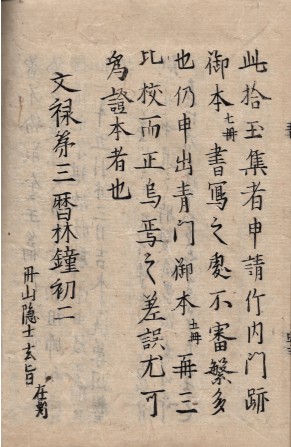 此拾玉集者申請竹内門跡
御本七冊書写之処不審繁多
也仍申出青門御本五冊再三
比校而正烏焉之差誤尤可
為證本者也
文禄第三暦林鐘初二
丹山隠士玄旨在判